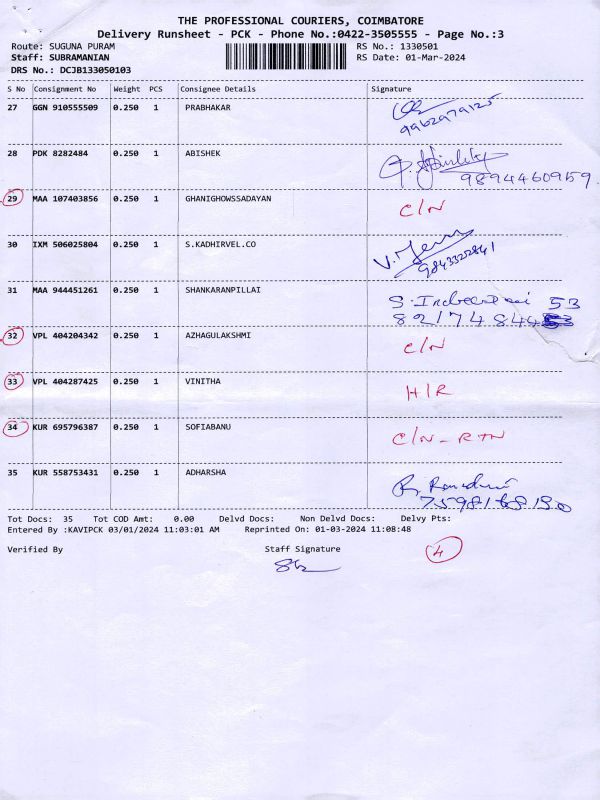 THE PROFESSIONAL COURIERS, COIMBATORE
Delivery Runsheet - PCK - Phone No.:0422-3505555 - Page No.:3
Route: SUGUNA PURAM RS No.: 1330501
Staff: SUBRAMANIAN RS Date: 01-Mar-2024
DRS No.: DCJB133050103
S No Consignment No Weight PCS Consignee Details Signature
27 GGN 910555509 0.250 1 PRABHAKAR
9962979125
28 PDK 8282484 0.250 1 ABISHEK
9894460959
29 MAA 107403856 0.250 1 GHANIGHOWSSADAYAN C/N
30 IXM 506025804 0.250 1 S.KADHIRVEL.CO
9843322841
31 MAA 944451261 0.250 1 SHANKARANPILLAI
53
32 VPL 404204342 0.250 1 AZHAGULAKSHMI C/N
33 VPL 404287425 0.250 1 VINITHA H/R
34 KUR 695796387 0.250 1 SOFIABANU C/N-RTN
35 KUR 558753431 0.250 1 ADHARSHA
Tot Docs: 35 Tot COD Amt: 0.00 Delvd Docs: Non Delvd Docs: Delvy Pts:
Entered By :KAVIPCK 03/01/2024 11:03:01 AM Reprinted On: 01-03-2024 11:08:48
Verified By Staff Signature 4